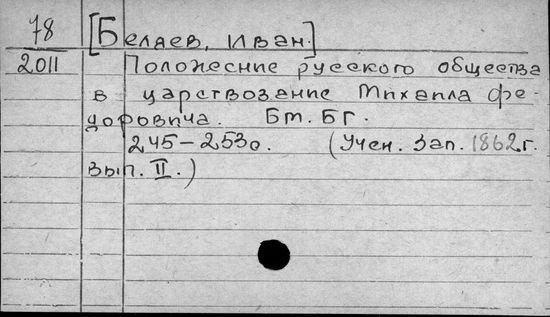 78 [Беляев, Иван.]
2011 Положение русского общества
в царствование Михаила Фе-
доровича. Бт. БГ.
245-253о. (Учен. Зап. 1862г.
Вып. II.)